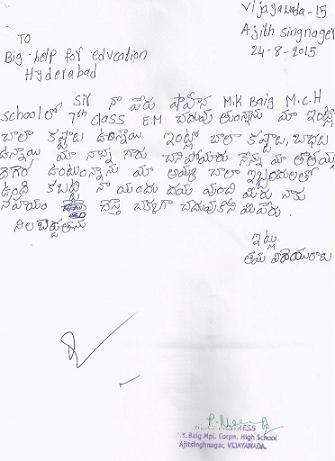 Vijayawada-15
Ajith singnager
24-8-2015
TO
Big-help for edvcation
Hyderabad
Sir నా పేరు షాహీన M.K Baig M.C.H
school లో 7th class E.M చదువు తున్నాను మా ఇంట్లో
చాలా కష్టాలు ఉన్నాయి ఇంట్లో చాలా కష్టాలు, బాధలు
ఉన్నాయి మా నాన్న గారు చనిపోయారు నేన్ను మా
దగ్గర ఉంటున్నాను మా చాలా ఇబ్బందులతో
ఉంది కబట్టి నా యందు దయ వుంచి మీరు నాకు
సహయం చేస్తే చక్కగా చదువుకొని మీపేరు
నిల బెడ్డుతాను
ఇట్లు
తమ విదేయురాలు
HEAD MISTRESS
.K.Baig Mpl. Corpn. High School
Ajitsinghnagar, VIJAYAWADA.